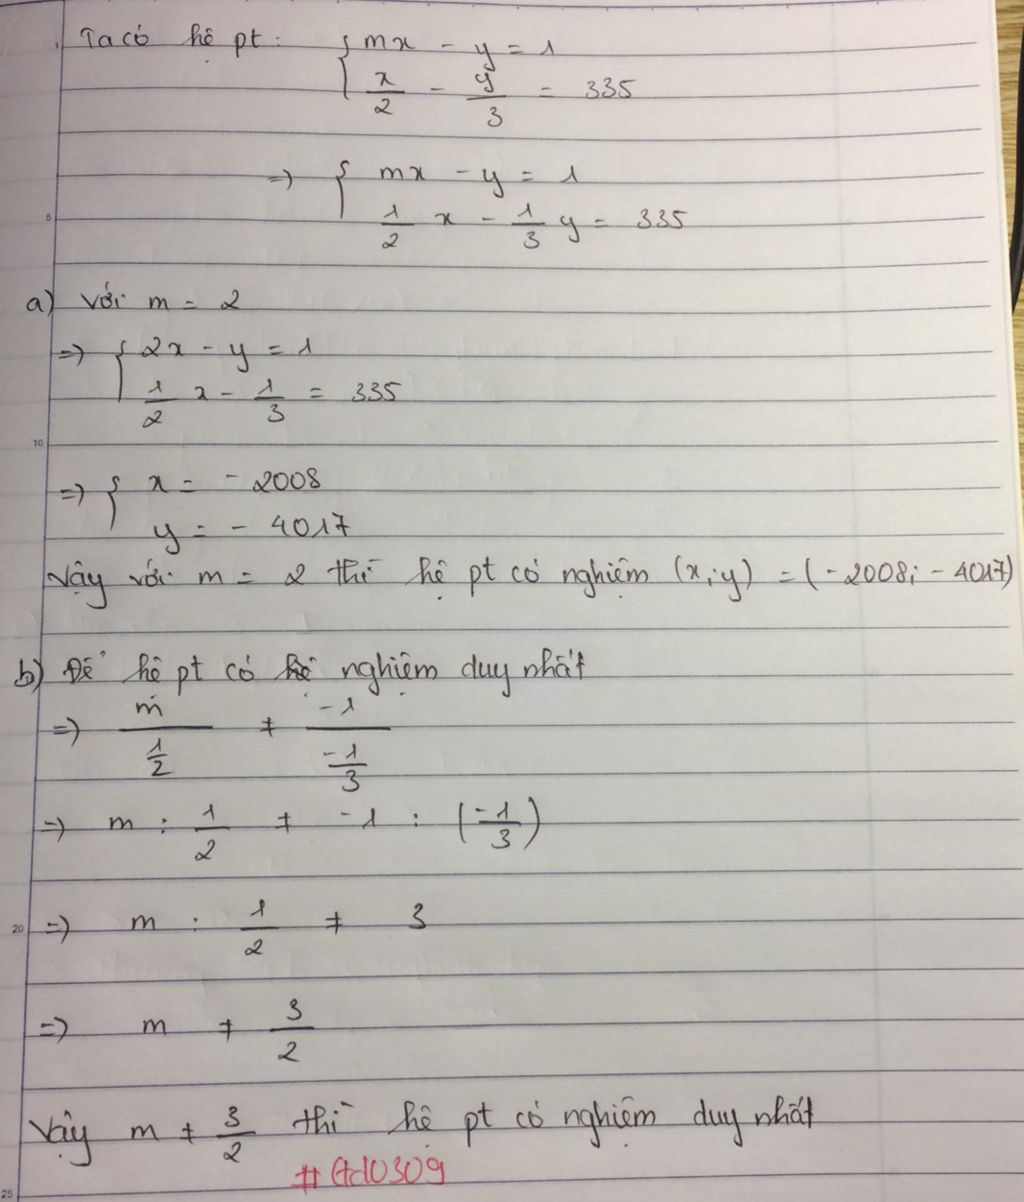 Ta có hệ pt: { mx - y = 1
x/2 - y/3 = 335
=> { mx - y = 1
1/2 x - 1/3 y = 335
5
a) Với m = 2
=> { 2x - y = 1
1/2 x - 1/3 = 335
10
=> { x = - 2008
y = - 4017
Vậy với m = 2 thì hệ pt có nghiệm (x;y) = (-2008; - 4017)
b) Để hệ pt có nghiệm duy nhất
=> m / (1/2) ≠ -1 / (-1/3)
=> m : 1/2 ≠ -1 : (-1/3)
20 => m : 1/2 ≠ 3
=> m ≠ 3/2
Vậy m ≠ 3/2 thì hệ pt có nghiệm duy nhất
25